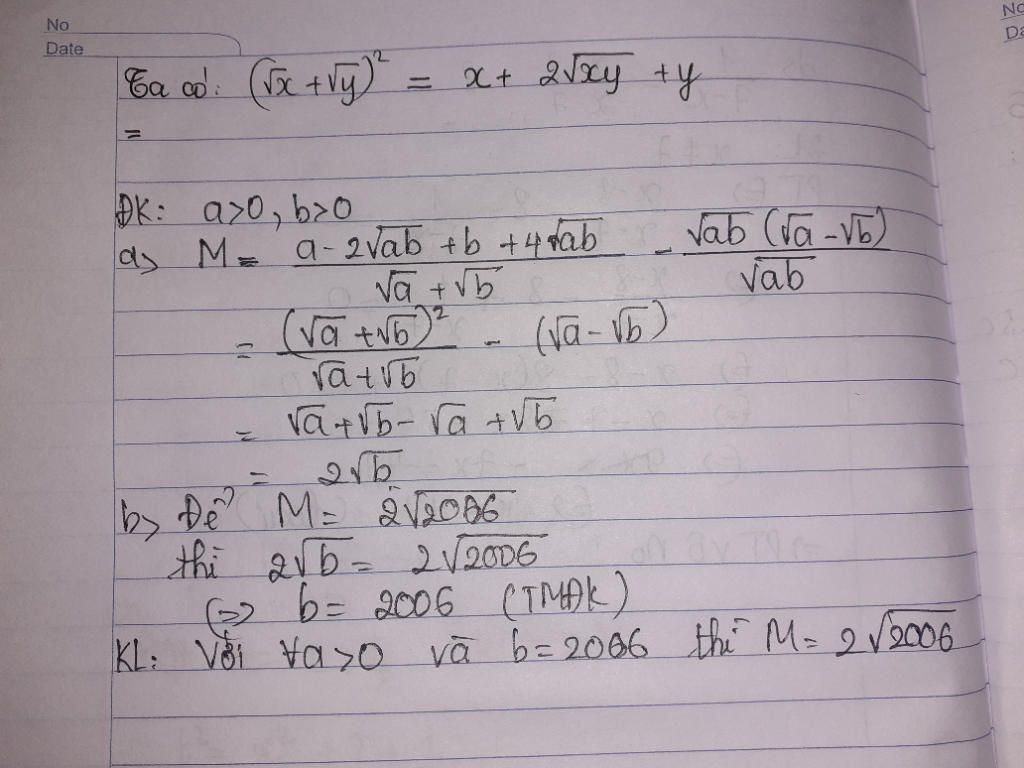 No
Date
Ta có: (√x + √y)² = x + 2√xy + y
=
ĐK: a>0, b>0
a> M = (a - 2√ab + b + 4√ab)/(√a + √b) - √ab (√a - √b)/√ab
= (√a + √b)²/(√a + √b) - (√a - √b)
= √a + √b - √a + √b
= 2√b
b> Để M = 2√2006
thì 2√b = 2√2006
(=> b = 2006 (TMĐK)
KL: Với ∀a>0 và b = 2006 thì M = 2√2006